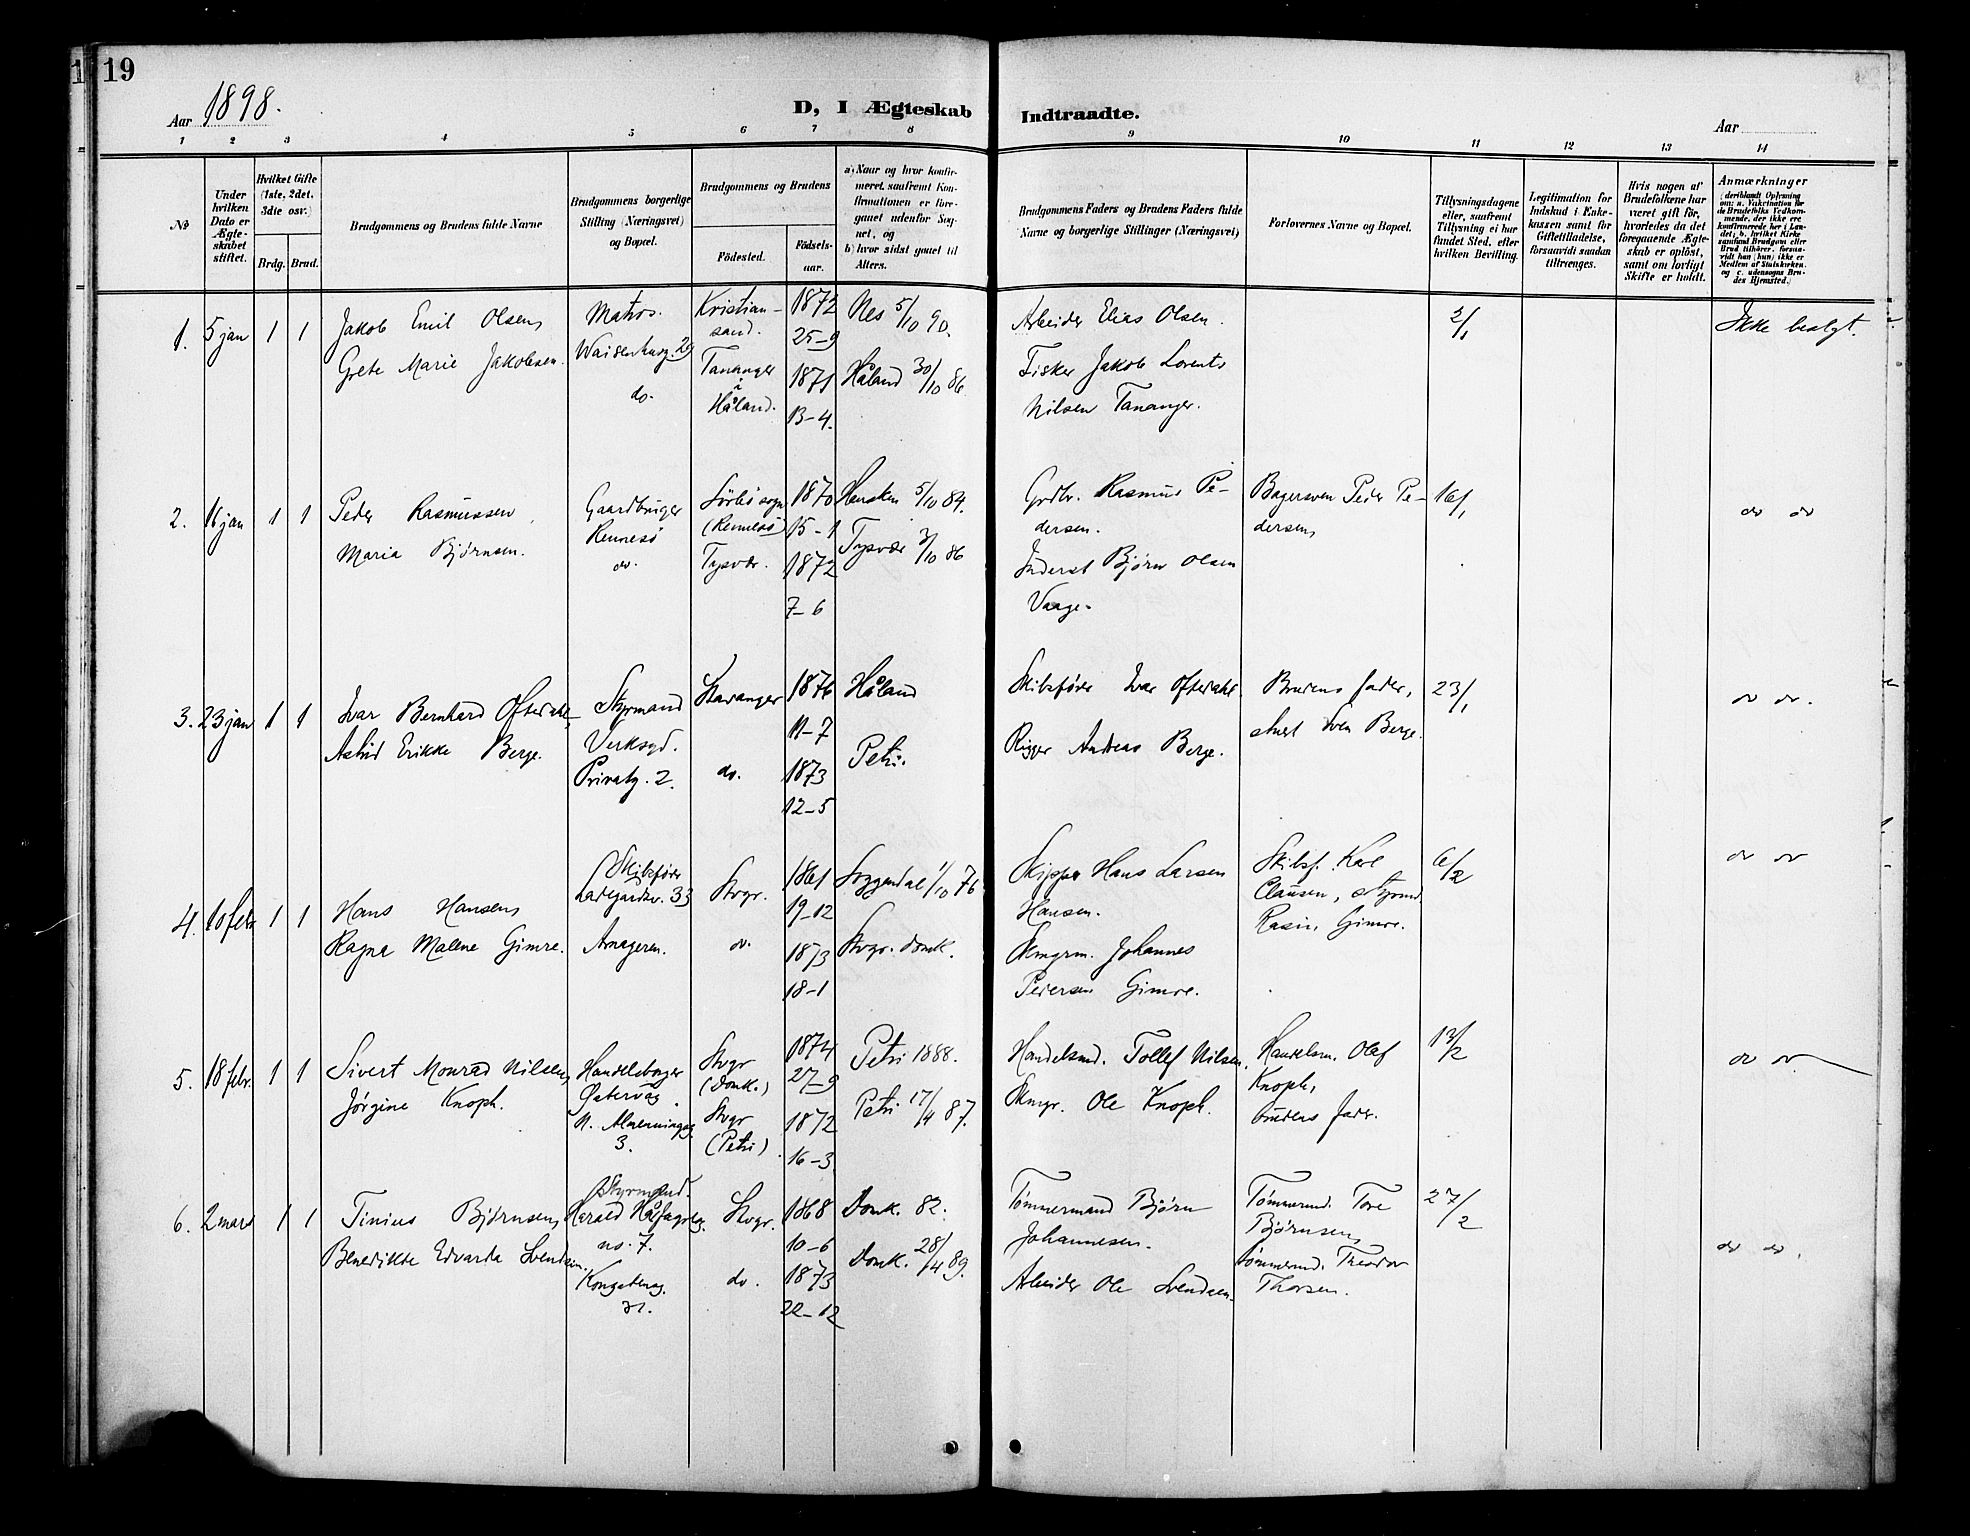 19
Aar 1898.
D, I Ægteskab Indtraadte.
Aar
1 2 3 4 5 6 7 8 9 10 11 12 13 14
No
Under hvilken Dato er Ægteskabet stiftet.
Hvilket Gifte (1ste, 2det, 3die osv.)
Brdg. Brud.
Brudgommens og Brudens fulde Navne
Brudgommens borgerlige Stilling (Næringsvei) og Bopæl.
Brudgommens og Brudens
Fødested.
Fødselsaar.
a) Naar og hvor konfirmeret, saafremt Konfirmationen er foregaaet udenfor Sognet, og
b) hvor sidst gaaet til Alters.
Brudgommens Faders og Brudens Faders fulde Navne og borgerlige Stillinger (Næringsvei)
Forlovernes Navne og Bopæl.
Tillysningsdagene eller, saafremt Tillysning ei har fundet Sted, efter hvilken Bevilling.
Legitimation for Indskud i Enkekassen samt for Giftetilladelse, forsaavidt saadan tiltrænges.
Hvis nogen af Brudefolkene har været gift før, hvorledes da det foregaaende Ægteskab er opløst, samt om lovligt Skifte er holdt.
Anmærkninger
1. 5 jan 1 1
Jakob Emil Olsen,
Grete Marie Jakobsen.
Matros.
Waisenhusg. 29
do.
Kristiansand.
Tananger i Håland.
1872
25-9
1871
13-4.
Nes 5/10 90.
Håland 30/10 86
Arbeider Elias Olsen.
Fisker Jakob Lorents
Nilsen Tananger.
2/1
Ikke beslgt.
2. 16 jan 1 1
Peder Rasmussen,
Maria Bjørnsen.
Gaardbruger
Rennesö
do.
Sörbö sogn
(Rennesö)
Tysvær.
1870
15-1
1872
7-6
5/10 84.
Tysvær 3/10 86
Grdbr. Rasmus Pe-
dersen.
Inderst Bjørn Olsen
Vaage.
Bagersven Peder Pe-
dersen,
16/1
do do
3. 23 jan 1 1
Ivar Bernhard Oftedahl,
Astrid Erikke Berge.
Styrmand
Verksgd.
Privatg. 2.
Stavanger
do.
1876
11-7
1873
12-5
Håland
Petri.
Skibsfører Ivar Oftedahl.
Rigger Andreas Berge.
Brudens fader,
Sven Berge.
23/1
do do.
4. 10 febr 1 1
Hans Hansen,
Ragna Malene Gimre.
Skibsfører
Ladegardsv. 33
Amageren.
Stvgr.
do.
1861
19-12
1873
18-1
Soggendal 1/10 76
Stvgr. Domk.
Skipper Hans Larsen
Hansen.
Johannes
Pedersen Gimre.
Skibsf. Karl
Clausen, Styrmd.
Gimre.
6/2
do do
5. 18 febr. 1 1
Sivert Monrad Nilsen,
Jörgine Knoph.
Handelsborger
Østervåg.
N. Almenningsg.
3.
Stvgr
(Domk.)
Stvgr
(Petri)
1874
27-9
1872
16-3
Petri 1888.
Petri 17/4 87.
Handelsmd. Tollef Nilsen,
Ole Knoph.
Handelsm. Olaf
Knoph,
brudens fader.
13/2
do do
6. 2 mars 1 1
Tinius Bjørnsen,
Benedikte Edvarda Svendsen.
Styrmand.
Harald Hålfagresg.
no. 7.
Kongsteng.
31.
Stvgr.
do.
1868
10-6
1873
22-12
Domk. 82.
Domk. 28/4 89.
Tømmermand Bjørn
Johannesen.
Arbeider Ole Svendsen.
Tømmermd. Tore
Bjørnsen,
tømmermd. Theodor
Thorsen.
27/2
do do.